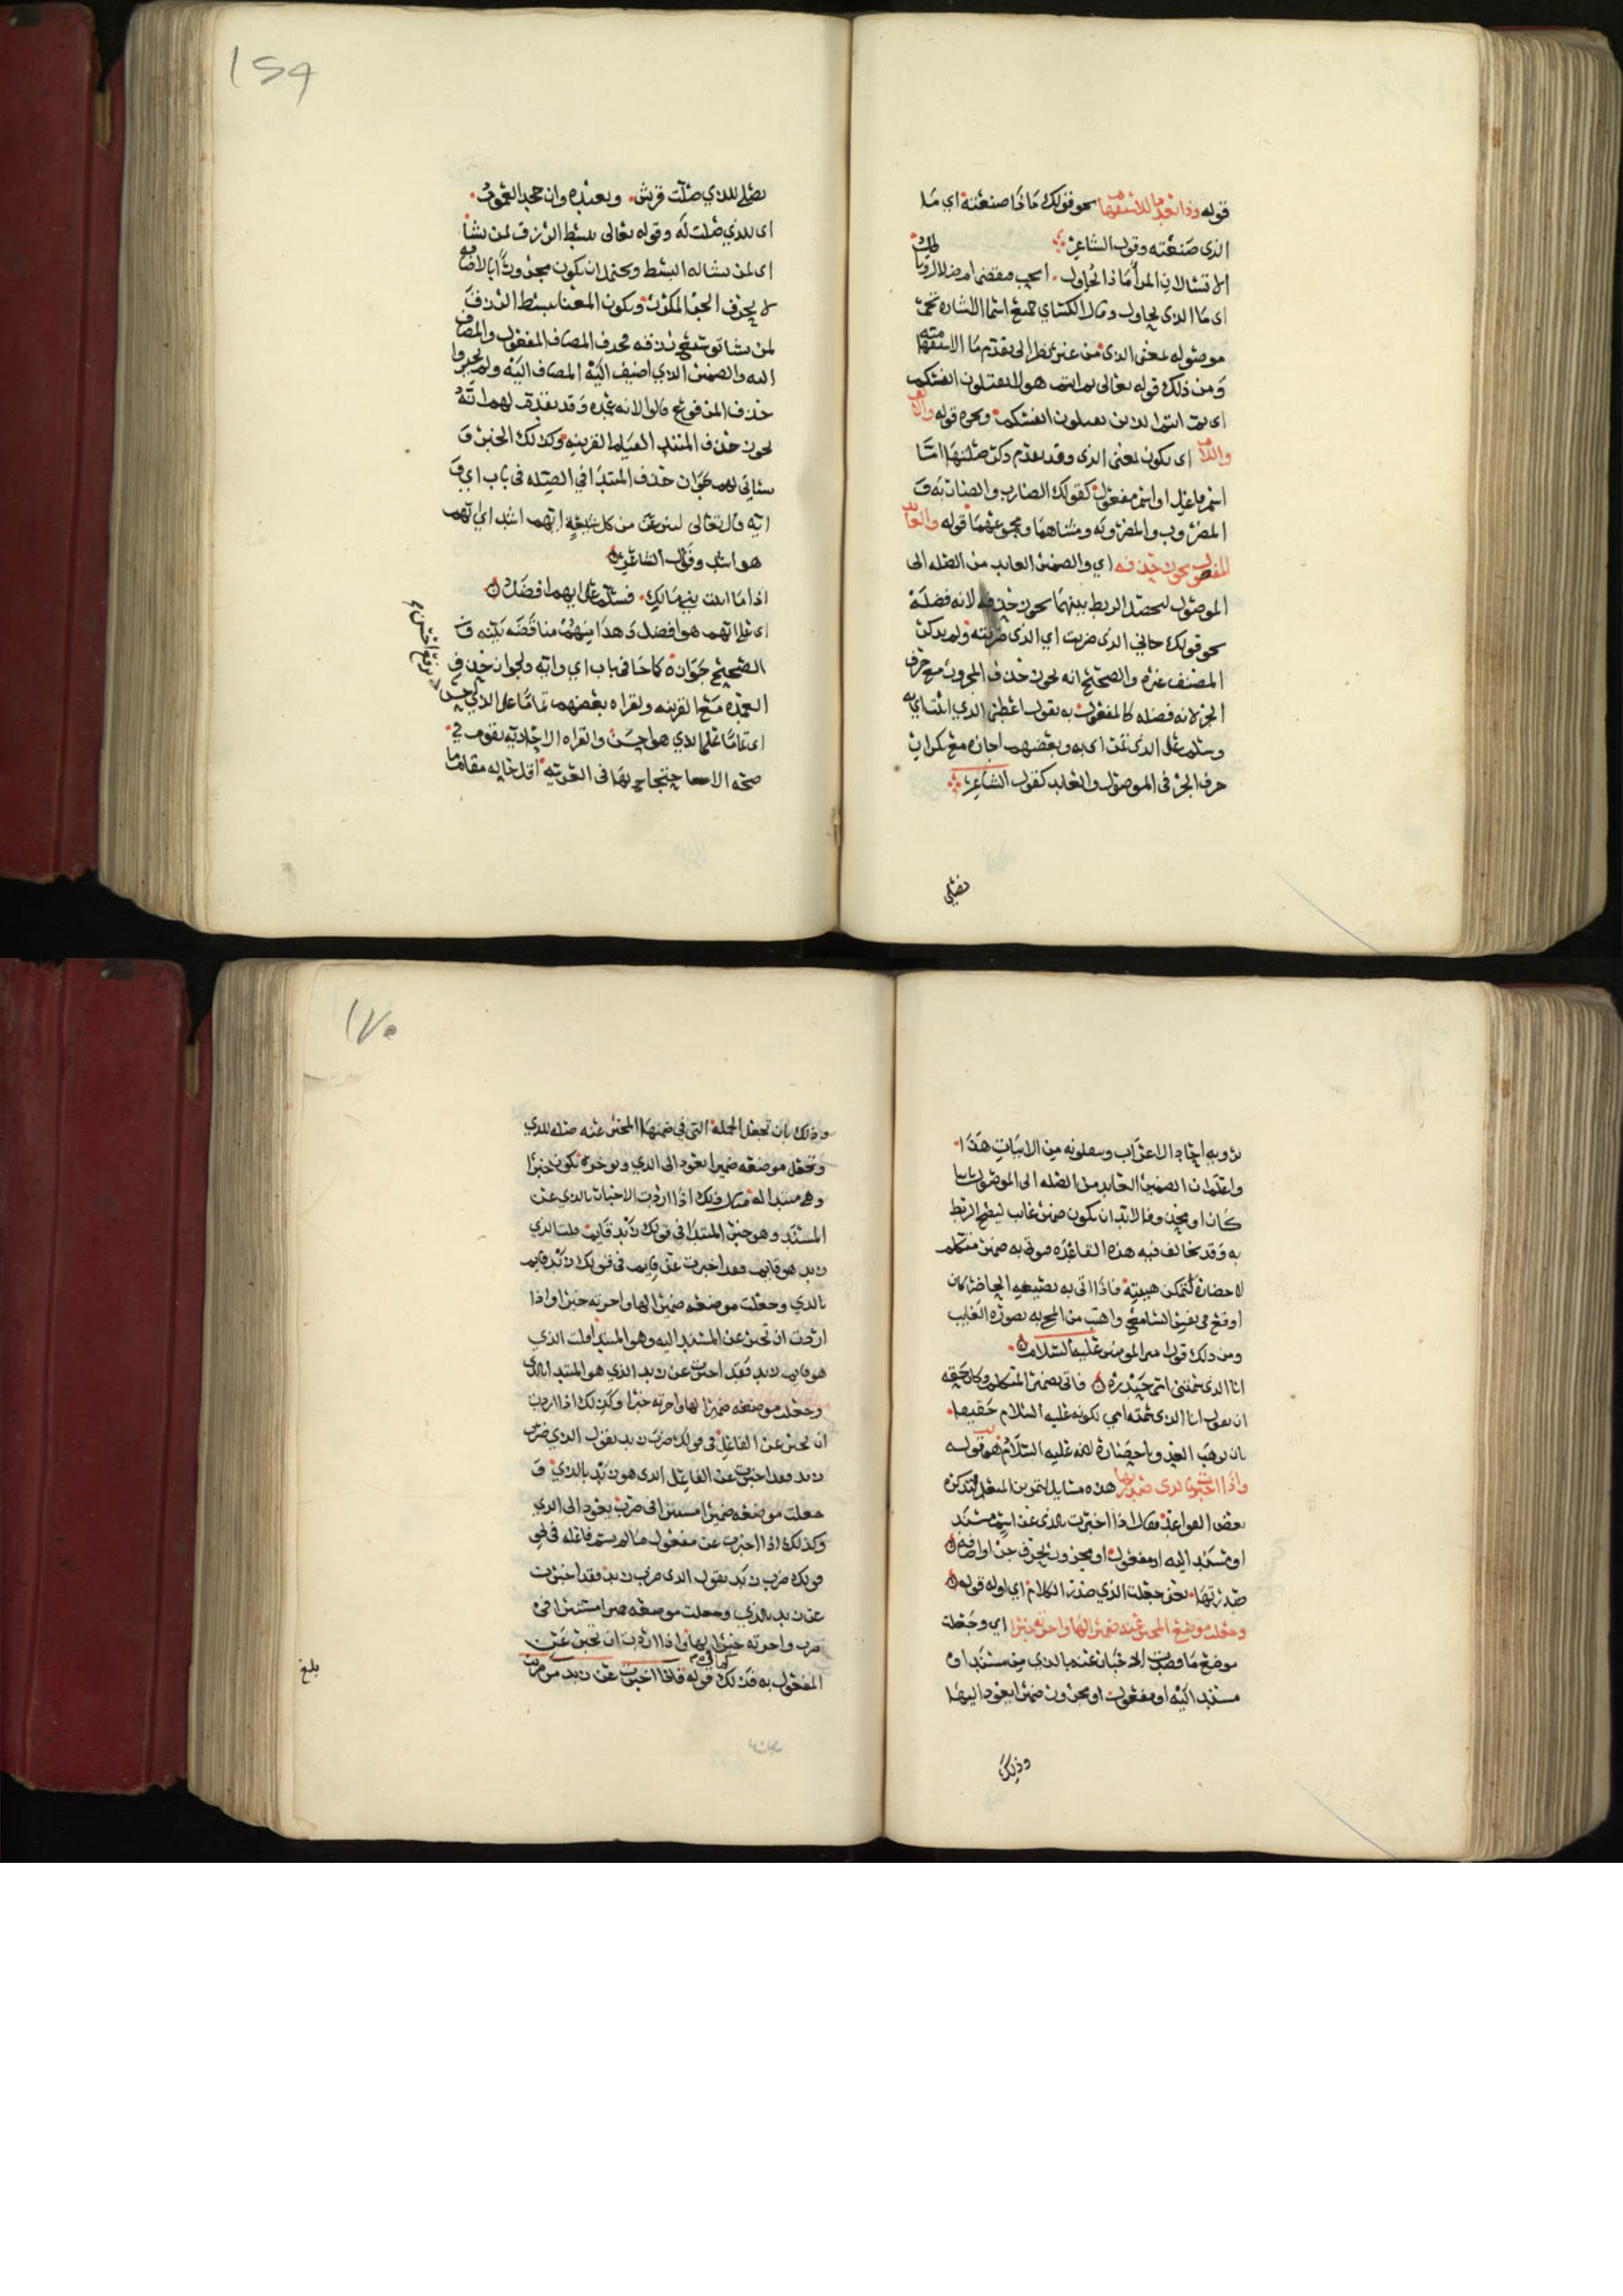 قوله وذا بعد ما للاستفهام نحو قولك ماذا صنعته اي ما
الذي صنعته وقول الشاعر
الا تسألان المرء ماذا يحاول . انحب فيقضى ام ضلال وباطل
اي ما الذي يحاول وقال الكسائي جميع اسما الاشاره تجي
موصوله بمعنى الذي من غير نظر الى تقدم ما الاستفهاميه
ومن ذلك قوله تعالى ثم انتم هولا تقتلون انفسكم
اي ثم انتم الذين تقتلون انفسكم ونحوه قوله والالف
واللام اي يكون بمعنى الذي وقد تقدم ذكر صلتها اما
اسم فاعل او اسم مفعول كقولك الضارب والضاربه و
المضروب والمضروبه ومثناهما ومجموعهما قوله والعايد
المفعول يجوز حذفه اي والضمير العايد من الصله الى
الموصول ليحصل الربط بينهما يجوز حذفه لانه فضلة
نحو قولك جاني الذي ضربت اي الذي ضربته ولم يذكر
المصنف غيره والصحيح انه يجوز حذف المجرور مع حرف
الجر لانه فضله كالمفعول به تقول اعطني الذي ائتساي به
وسلم على الذي تمت اي به وبعضهم اجازه مع تكرار
حرف الجر في الموصول والعايد كقول الشاعر
نصلي
159
نصلي للذي صلت قريش . ونعبده وان جحد العموم
اي للذي صلت له وقوله تعالى يبسط الرزق لمن يشا
اي لمن يشا له البسط ويحتمل ان يكون مجرورا بالاضافه
لا بحرف الجر المذكور ويكون المعنا يبسط الرزق
لمن يشا توسيع رزقه فحذف المضاف المفعول والمضاف
اليه والضمير الذي اضيف اليه المضاف اليه ولم يجيزوا
حذف المرفوع قالوا لانه عمده وقد تقدم لهم انه
يجوز حذف المبتدا لقيام القرينه وكذلك الخبر و
سياتي لهم جواز حذف المبتدا في الصله في باب اي و
ايه قال تعالى لننزعن من كل شيعة ايهم اشد اي ايهم
هو اشد وقال الشاعر
اذا ما اتيت بني مالك . فسلم على ايهم افضل
اي على ايهم هو افضل وهذا منهم مناقضه بينه و
الصحيح جوازه كما جا في باب اي وايه ولجواز حذف
العمده مع القرينه ولقراه بعضهم تماما على الذي احسن
اي تماما على الذي هو احسن والقراه الاحاديه تقوم في
صحه الاحتجاج بها في العربيه اقل حاله مقام ما
برفع احسن
رويه احاد الاعراب وينقلونه من الابيات هذا
واعلم ان الضمير العايد من الصله الى الموصول ثابتا
كان او محذوفا لا بد ان يكون ضمير غايب ليصح الربط
به وقد يخالف فيه هذه القاعده فيوتى به ضمير متكلم
لاحضاره لتمكن هيبته فاذا اتي به بصيغه الحاضر كان
اوقع في نفس السامع واهيب من المجي به بصوره الغايب
ومن ذلك قول امير المومنين عليه السلام
انا الذي سمتني امي حيدره فاتى بضمير المتكلم وكان حقه
ان يقول انا الذي سمته امي لكونه عليه السلام حقيقا
بان يرهب العدو باحضاره لانه عليه السلام هو قوله
واذا اخبرت بالذي صدرتها هذه مسايل لتمرين المتعلم لتذكر
بعض القواعد فقال اذا اخبرت بالذي عن اسم مسند
او مسند اليه او مفعول او مجرور بحرف جر او اضافه
صدرتها نحن جعلت الذي صدر الكلام اي اوله قوله
وجعلت موضع المخبر عنه ضميرا لها واخرته خبرا اي وجعلت
موضع ما قصدت الاخبار عنه بالذي من مسند او
مسند اليه او مفعول او مجرور ضميرا يعود اليها
وذلك
170
وذلك بان تجعل الجملة التي في ضمنها المخبر عنه صله للذي
وتجعل موضعه ضميرا يعود الى الذي وتوخره يكون خبرا
وهي مبتدا له مثال ذلك اذا اردت الاخبار بالذي عن
المسند وهو خبر المبتدا في قولك زيد قايم قلت الذي
زيد هو قايم فقد اخبرت عن قايم في قولك زيد قايم
بالذي وجعلت موضعه ضميرا لها واخرته خبرا واذا
اردت ان تخبر عن المسند اليه وهو المبتدا قلت الذي
هو قايم زيد فقد اخبرت عن زيد الذي هو المبتدا بالذي
وجعلت موضعه ضميرا لها واخرته خبرا وكذلك اذا اردت
ان تخبر عن الفاعل في قولك ضرب زيد تقول الذي ضرب
زيد فقد اخبرت عن الفاعل الذي هو زيد بالذي و
جعلت موضعه ضميرا مستترا في ضرب يعود الى الذي
وكذلك اذا اخبرت عن مفعول ما لم يسم فاعله في نحو
قولك ضرب زيد تقول الذي ضرب زيد فقد اخبرت
عن زيد بالذي وجعلت موضعه ضميرا مستترا في
ضرب واخرته خبرا لها واذا اردت ان تخبر عن
المفعول به فذلك قوله فاذا اخبرت عن زيد من ضربت
كما في م
بلغ